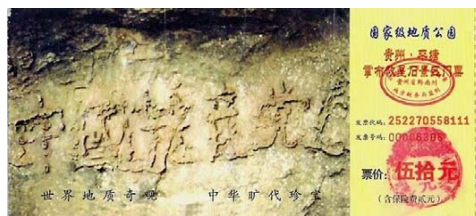 中國共产党
世界地质奇观 中华旷代珍宝
国家级地质公园
贵州·平塘
掌布救星石景区门票
发票代码：252270558111
发票号码：00006306
票价：伍拾元
（含保险费贰元）